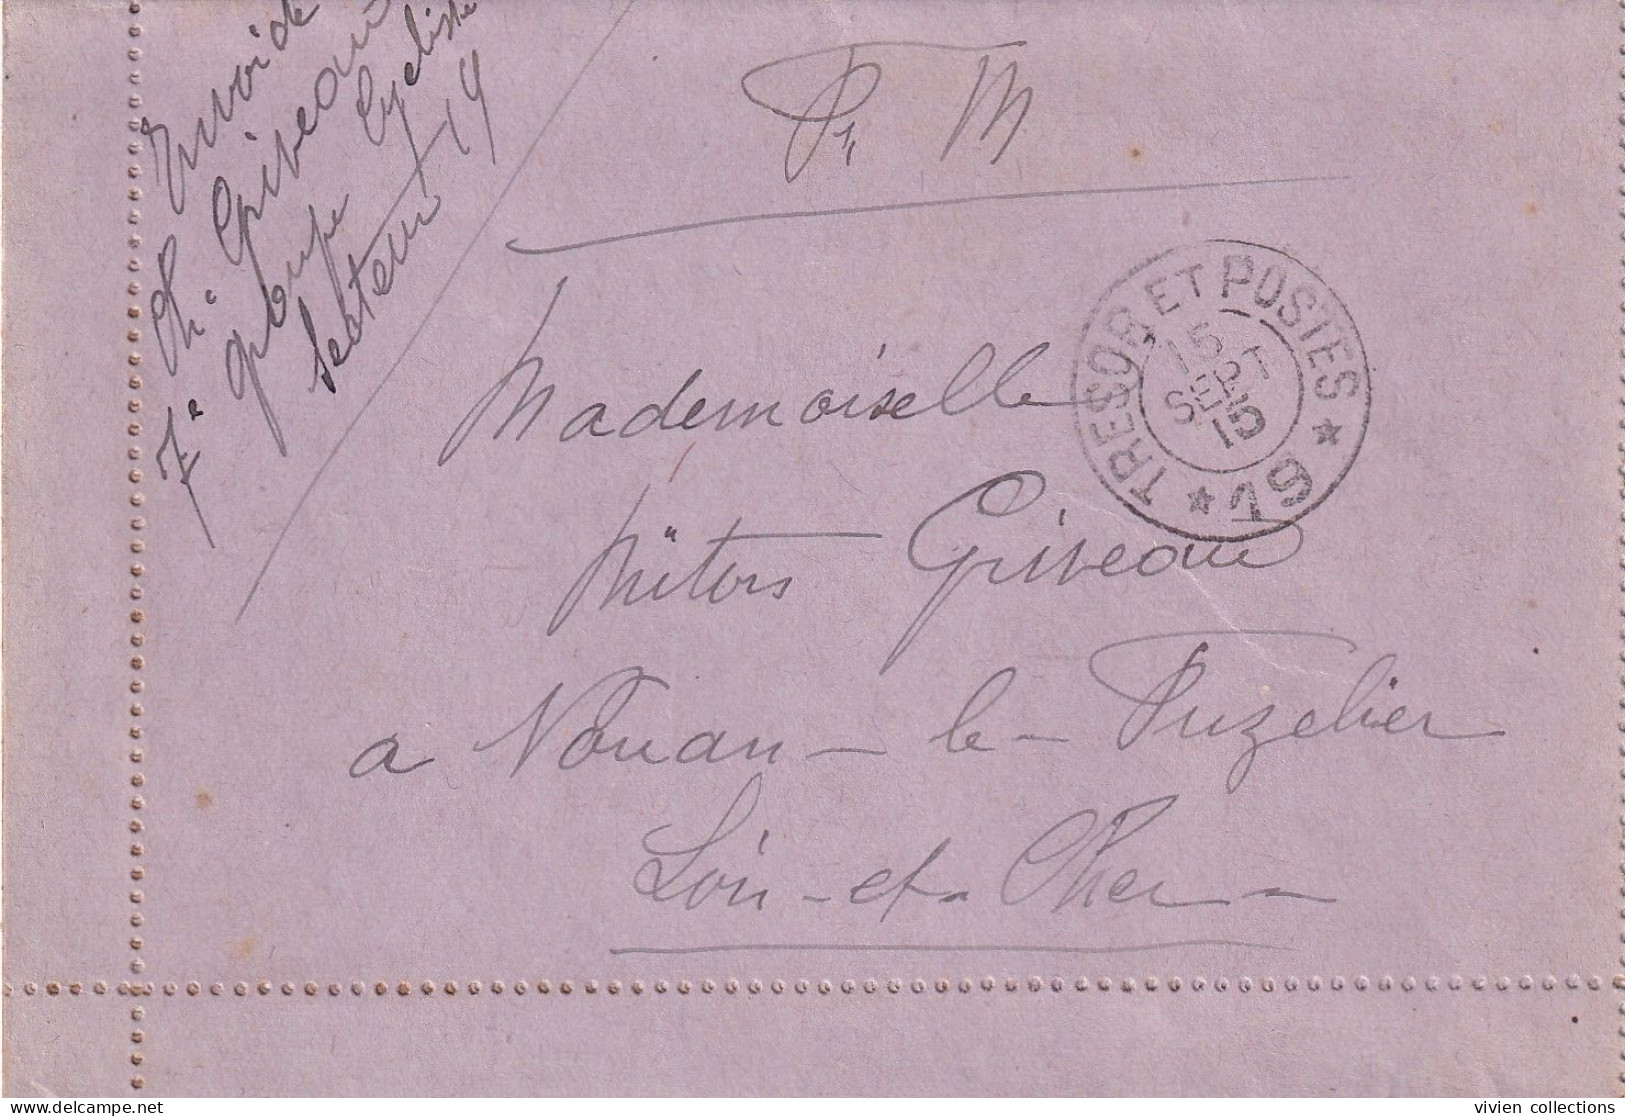 Envoi de
Ch. Griveau
7e groupe Cycliste
Secteur 19
Fr M
TRESOR ET POSTES
15
SEPT
15
★ 19 ★
Mademoiselle
Griveau
a Nouan-le-Fuzelier
Loir-et-Cher
vivien collections